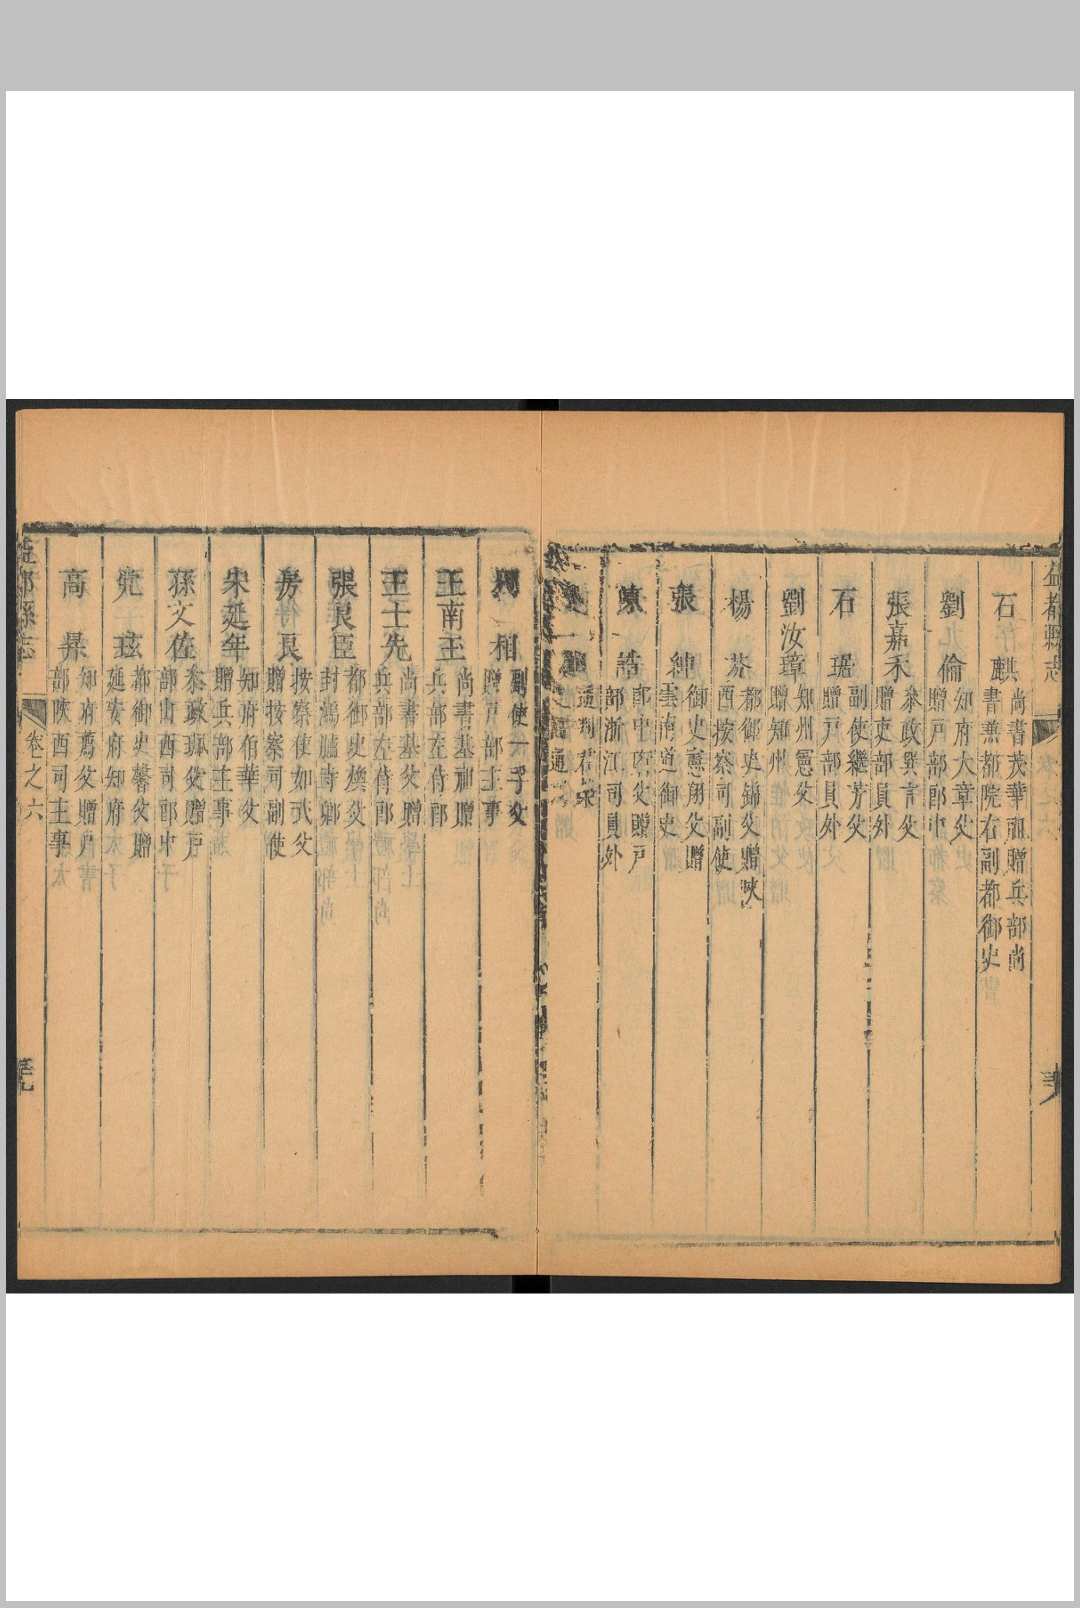 益都縣志
石麒
尚書茂華祖贈兵部尚
書兼都院右副都御史
劉倫
知府大章父
贈戸部郎中
張嘉禾
參政巽言父
贈吏部員外
石琚
副使繼芳父
贈戸部員外
劉汝璋
知州愿父
贈知州
楊
都御史錦父贈陝
酉按察司副使
張紳
御史憲翔父贈
雲南道御史
陳誥
郎中 父贈戸
部浙江司員外
相
副使一 父
贈戸部主事
王南主
尚書基祖贈
兵部左侍郎
王士先
尚書基父贈
兵部左侍郎
張良臣
都御史煥父
封鴻臚寺卿
房得艮
按察使如式父
贈按察司副使
宋延年
知府伯華父
贈兵部主事
孫文佐
叅政珮父贈戶
部山西司郎中
兗玆
都御史馨父贈
延安府知府
高昇
知府薦父贈戶
部陜酉司主事
益都縣志
卷之六